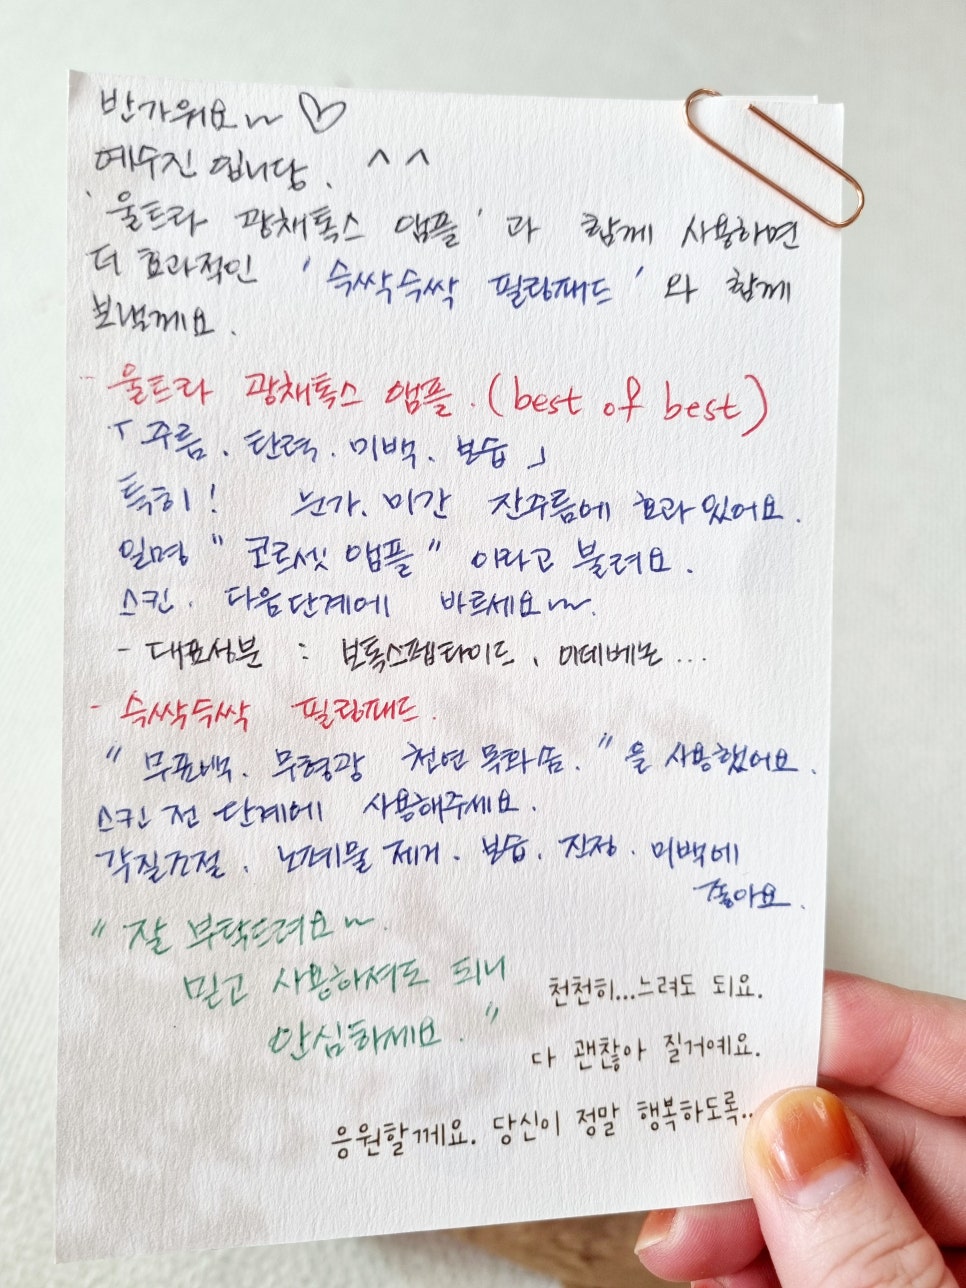 반가워요~ ♡
예수진 입니당. ^ ^
'울트라 광채톡스 앰플'과 함께 사용하면
더 효과적인 '슥싹슥싹 필링패드'와 함께
보낼께요.
- 울트라 광채톡스 앰플. (best of best)
「주름. 탄력. 미백. 보습」
특히! 눈가. 미간 잔주름에 효과있어요.
일명 "코르셋 앰플" 이라고 불려요.
스킨. 다음단계에 바르세요~.
- 대표성분 : 보톡스펩타이드. 이데베논...
- 슥싹슥싹 필링패드.
"무표백. 무형광 천연 목화솜."을 사용했어요.
스킨 전 단계에 사용해주세요.
각질정돈. 노폐물 제거. 보습. 진정. 미백에
좋아요.
"잘 부탁드려요~.
믿고 사용하셔도 되니
안심하세요."
천천히...느려도 되요.
다 괜찮아 질거예요.
응원할께요. 당신이 정말 행복하도록..